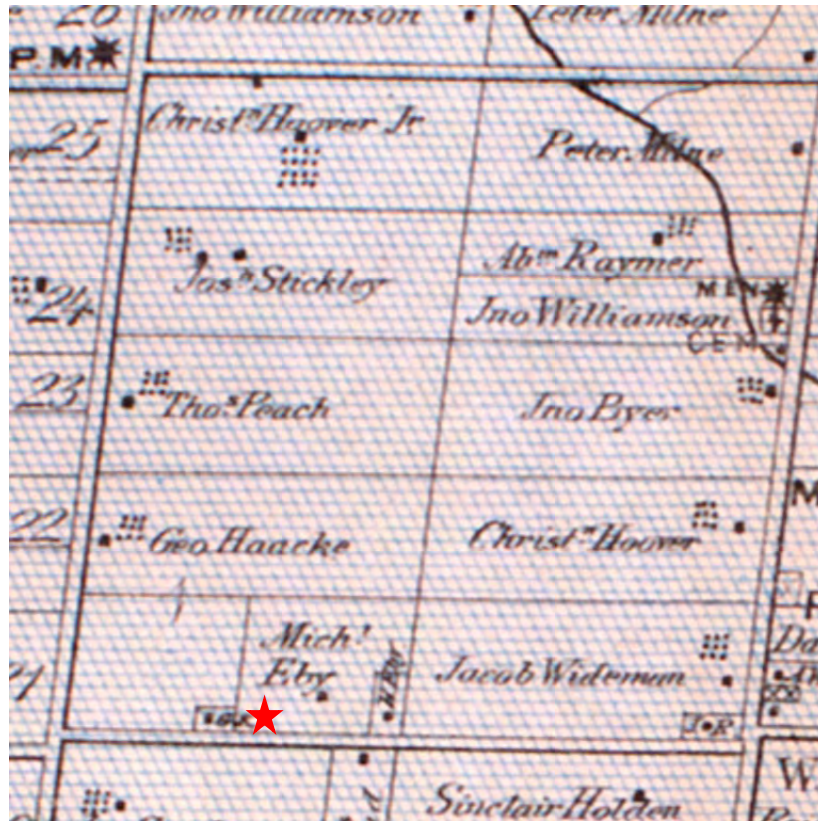 26
Jno Williamson
Peter Milne
P M
25
Christⁿ Hoover Jr
Peter Milne
Abᵐ Raymer
Josʰ Stickley
24
M I L N
Jno Williamson
C E M
23
Thoˢ Peach
Jno Byer
M
22
Geo Haacke
Christⁿ Hoover
P
Michˡ
Eby
Jacob Wideman
Da
J. R
W
Sinclair Holden